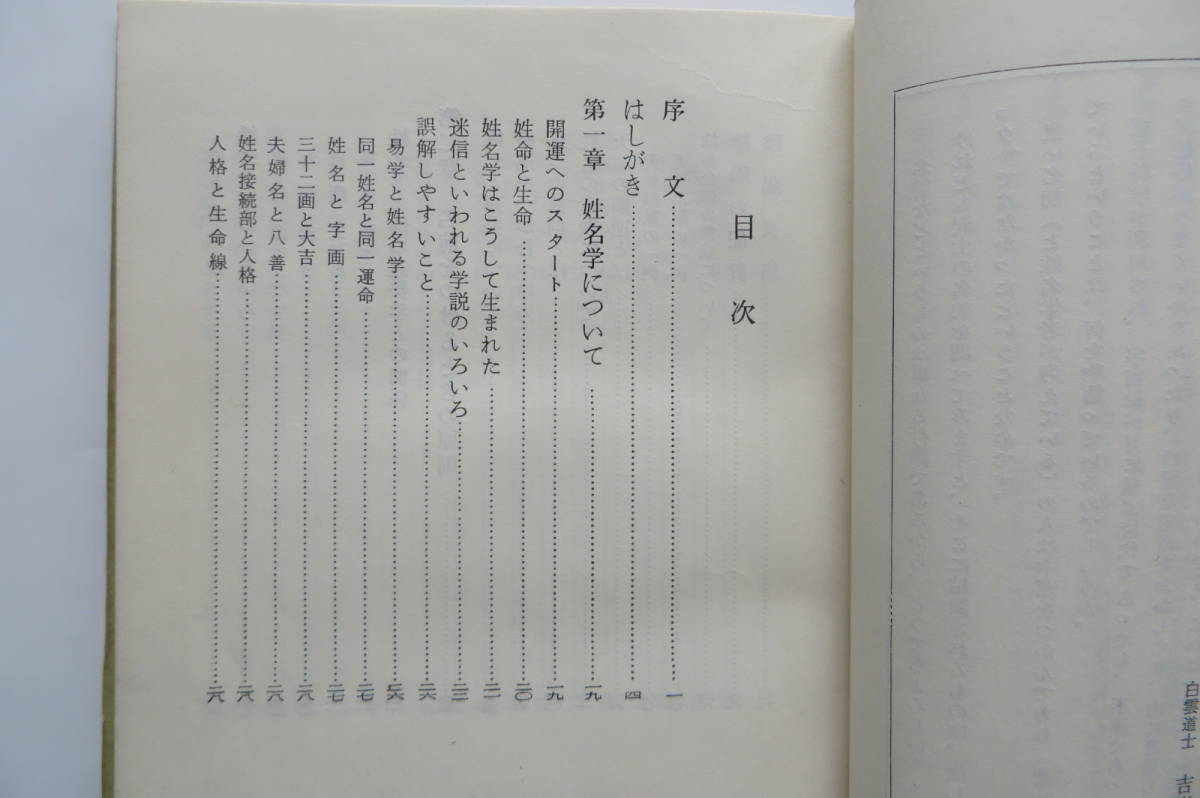 白雲道士 吉
目次
序文……一
はしがき……四
第一章 姓名学について……一九
開運へのスタート……一九
姓命と生命……二〇
姓名学はこうして生まれた……二一
迷信といわれる学説のいろいろ……二三
誤解しやすいこと……二六
易学と姓名学……二六
同一姓名と同一運命……二七
姓名と字画……二七
三十二画と大吉……二八
夫婦名と八善……二八
姓名接続部と人格……二八
人格と生命線……二八